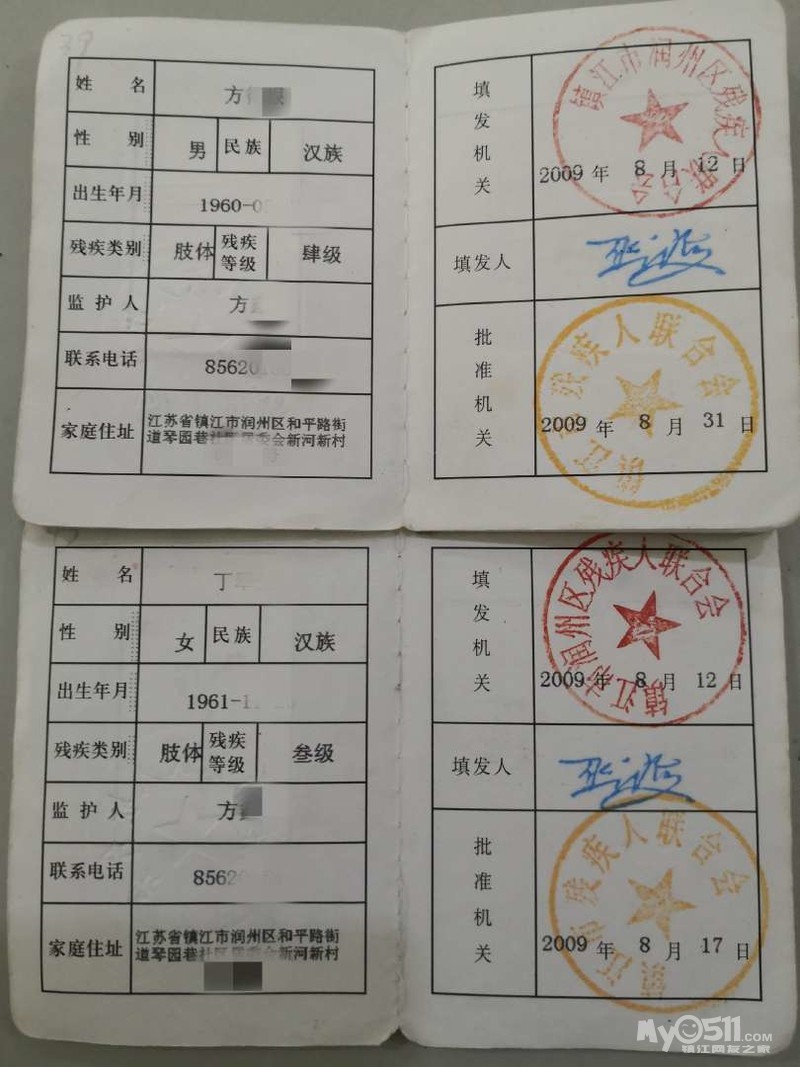 39
姓 名 方
性 别 男 民族 汉族
出生年月 1960-0
残疾类别 肢体 残疾等级 肆级
监护人 方
联系电话 85620
家庭住址 江苏省镇江市润州区和平路街
道琴园巷 会新河新村
填发机关 2009 年 8 月 12 日
镇江市润州区残疾人联合会
填发人
批准机关 2009 年 8 月 31 日
镇江市残疾人联合会
姓 名 丁
性 别 女 民族 汉族
出生年月 1961-1
残疾类别 肢体 残疾等级 叁级
监护人 方
联系电话 8562
家庭住址 江苏省镇江市润州区和平路街
道琴园巷社区 会新河新村
填发机关 2009 年 8 月 12 日
镇江市润州区残疾人联合会
填发人
批准机关 2009 年 8 月 17 日
镇江市残疾人联合会
My0511.COM
镇江网友之家